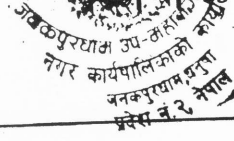 जनकपुरधाम उप-महानगर
नगर कार्यपालिकाको कार्यालय
जनकपुरधाम, धनुषा
प्रदेश नं. २, नेपाल